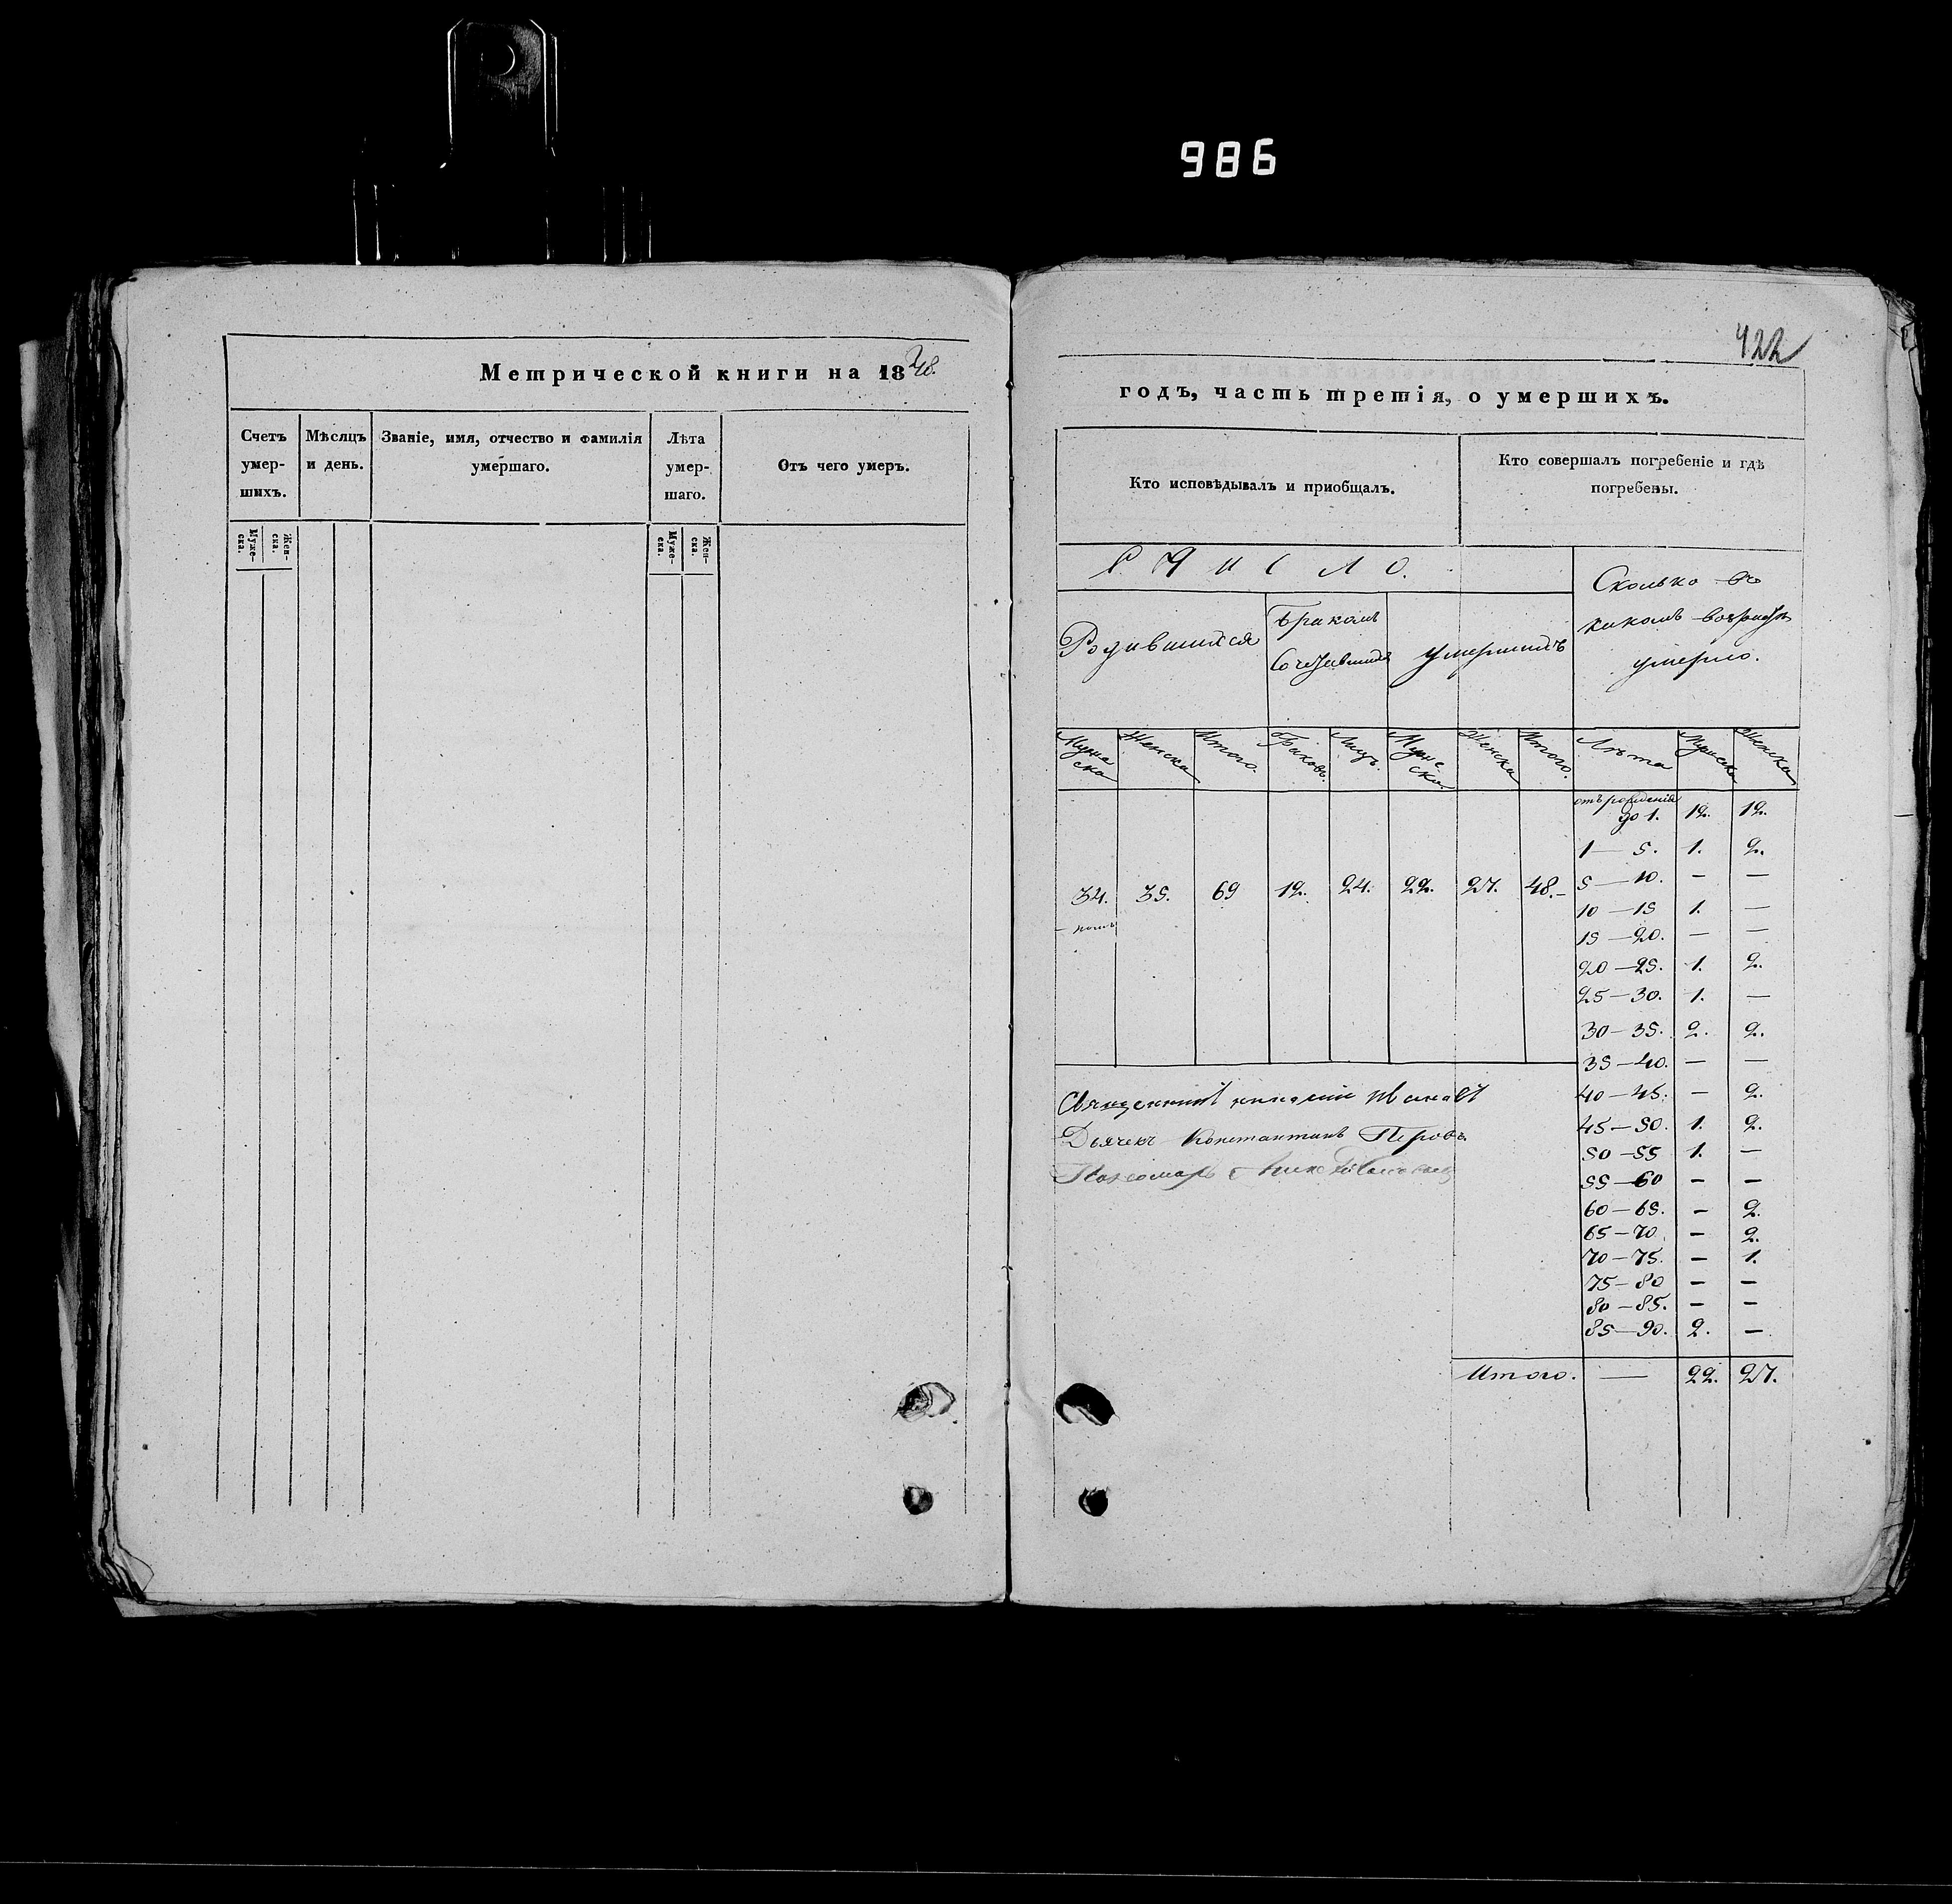 986
422
Метрической книги на 1848.
Счетъ умер-шихъ.
Мѣсяцъ и день.
Званіе, имя, отчество и фамилія умершаго.
Лѣта умер-шаго.
Отъ чего умеръ.
Муже-ска. Жен-ска.
Муже-ска. Жен-ска.
годъ, часть третія, о умершихъ.
Кто исповѣдывалъ и приобщалъ.
Кто совершалъ погребеніе и гдѣ погребены.
Ч И С Л О.
Родившихся
Бракомъ
умершихъ
Сколько въ
какомъ возрастѣ
умерло.
Мужеска Женска Итого. Браковъ. Лицъ. Мужеска Женска Итого. Лѣта Мужеска Женска
отъ рожденія
до 1. 12. 12.
1 — 5. 1. 2.
34. 35. 69 12. 24. 22. 27. 48.–
5 — 10. — —
10 — 15 1. —
15 — 20. — —
20 — 25. 1. 2.
25 — 30. 1. —
30 — 35. 2. 2.
35 — 40. — —
40 — 45. — 2.
45 — 50. 1. 2.
50 — 55 1. —
55 — 60 — —
60 — 65. — 2.
65 — 70. — 2.
70 — 75. — 1.
75 — 80 — —
80 — 85. — —
85 — 90. 2. —
Итого. — 22. 27.
Дьячекъ Константинъ
Пономарь